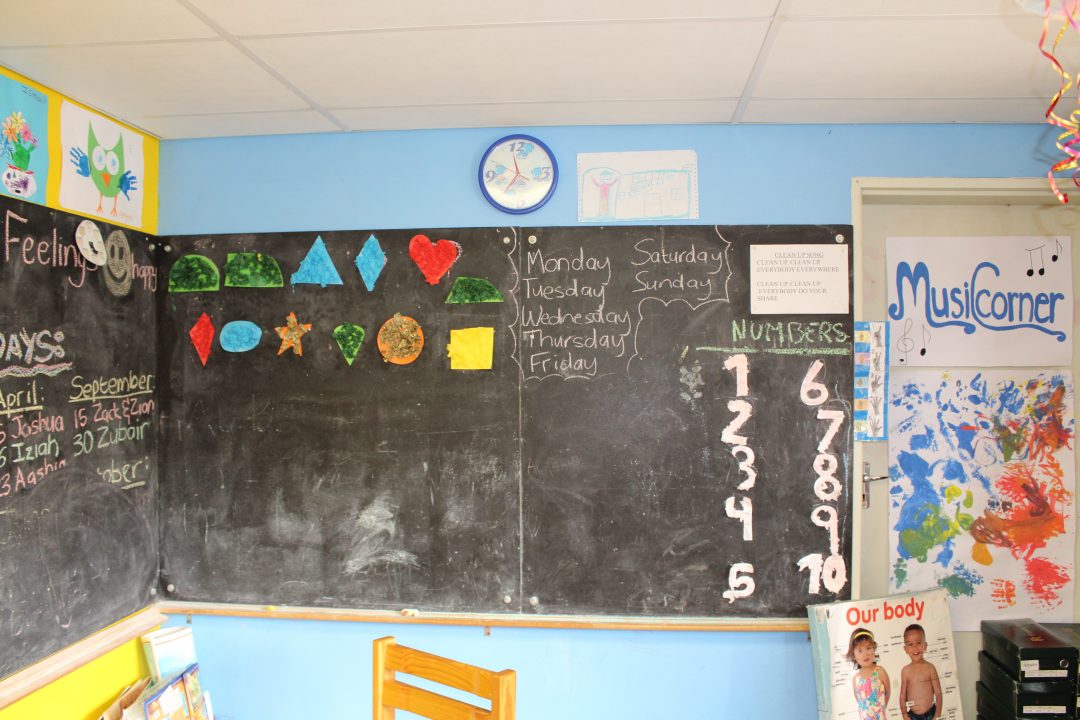 Ismail
Feelings
happy
DAYS:
April:
Joshua
Iziah
September:
15 Zack & Zian
30 Zubair
12
3
6
9
Monday
Tuesday
Wednesday
Thursday
Friday
Saturday
Sunday
CLEAN UP SONG
CLEAN UP, CLEAN UP
EVERYBODY EVERYWHERE
CLEAN UP, CLEAN UP
EVERYBODY DO YOUR
SHARE
NUMBERS
1
2
3
4
5
6
7
8
9
10
Music Corner
Our body